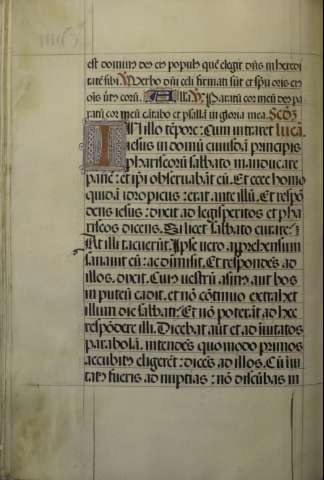 est dominus deus eius populus quē elegit dn̄s in heredi
tatē sibi ℣ Verbo dn̄i celi firmati sūt et spū oris eius
oīs ūtus eorū. Alla ℣ Paratū cor meū deus pa
ratū cor meū cātabo et psallā in gloria mea. Secdz
In illo tēpore: Cum intraret lucā.
iesus in domū cuiusdā principis
phariseorū sabbato manducare
panē: et ipsi obseruabāt eū. Et ecce homo
quidā idropicus: erat ante illū. Et respō
dens iesus: dixit ad legisperitos et pha
riseos dicens. Si licet sabbato curare:
At illi tacuerūt. Ipse uero apprehensum
sanauit eū: ac dimisit. Et respondēs ad
illos. dixit. Cuius uestrū asinus aut bos
in puteū cadit. et nō cōtinuo extrahet
illum die sabbati: Et nō poterāt ad hec
respōdere illi. Dicebat aūt et ad inuitatos
parabolā. intendēs quomodo primos
accubitus eligerēt: dicēs ad illos. Cū īui
tatus fueris ad nuptias: nō discūbas in